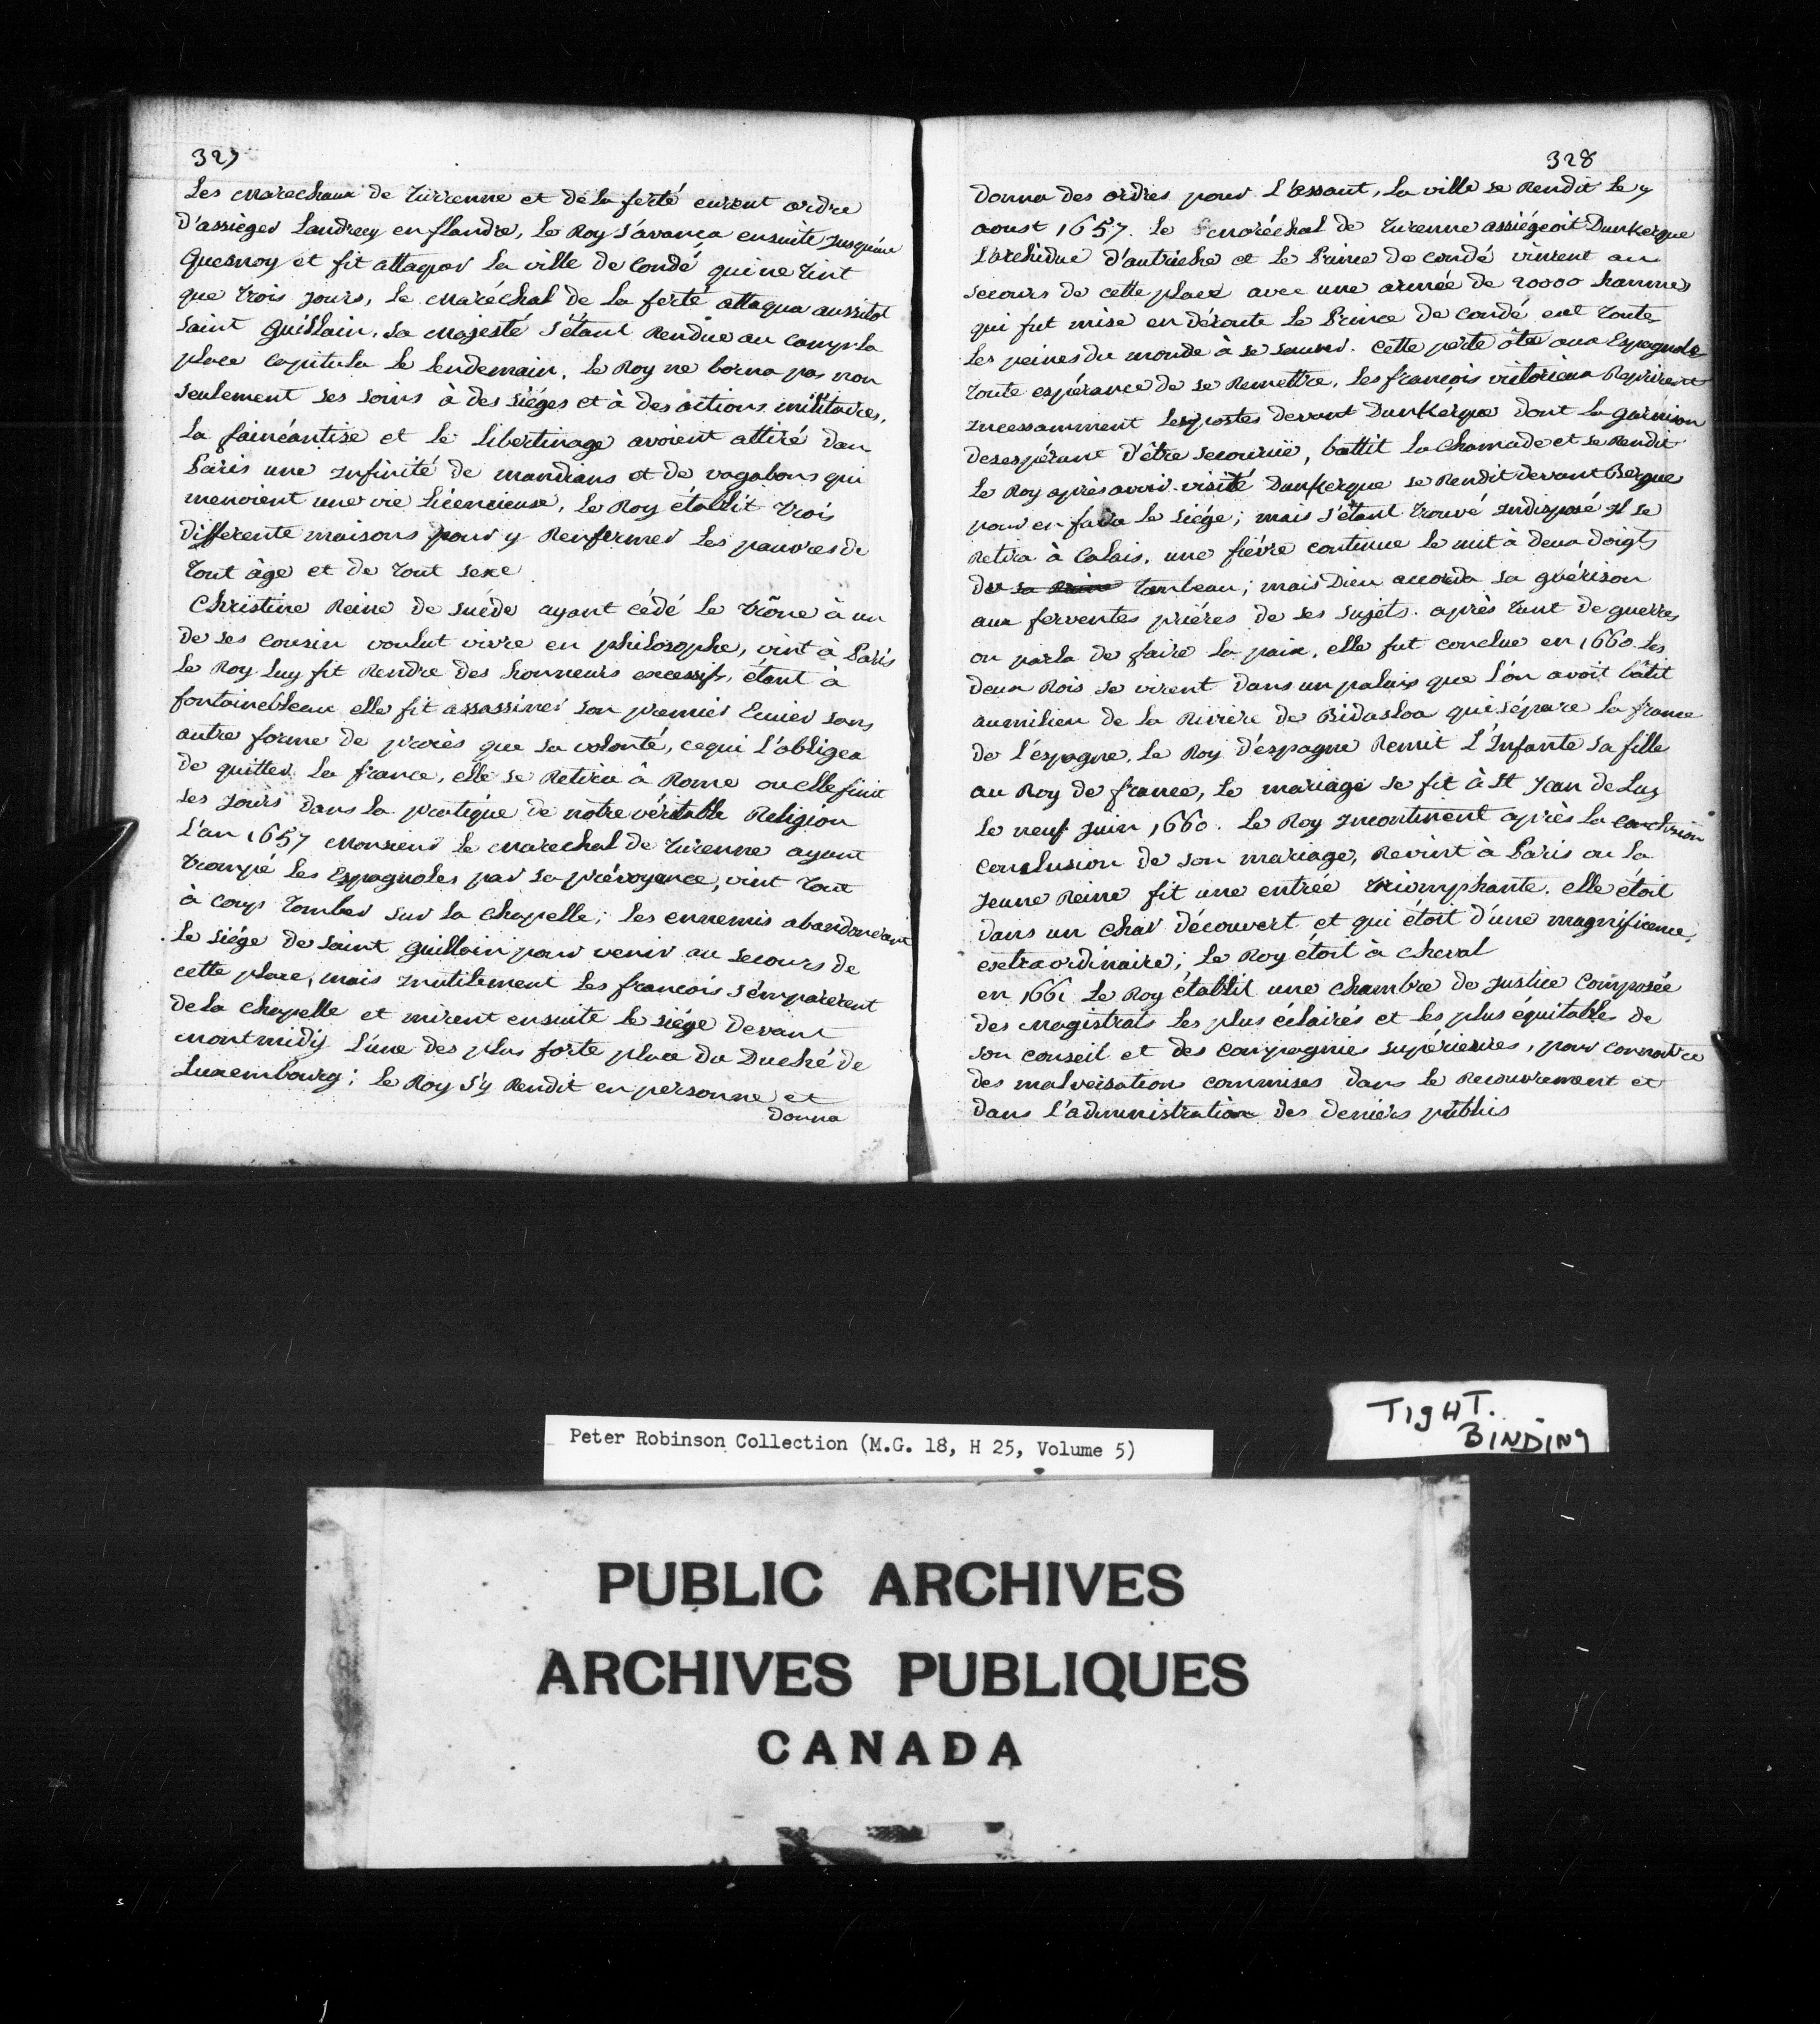 327
Les marechaux de Turrenne et de la ferté eurent ordre
D'assiéger Landrecy en flandre, le Roy s'avança ensuite Jusqu'au
Quesnoy et fit attaquer la ville de Condé qui ne tint
que trois Jours, le maréchal de la ferté attaqua aussitot
Saint Guislain, Sa Majesté s'étant Rendue au camp la
place capitula le lendemain. le Roy ne borna pas non
seulement ses soins à des siéges et à des actions militaires,
La fainéantise et le libertinage avoient attiré dan
Paris une Infinité de mandians et de vagabons qui
menoient une vie licencieuse, le Roy établit trois
differente maisons pour y Renfermer les pauvres de
tout âge et de tout sexe
Christine Reine de suéde ayant cédé le trône à un
de ses cousin voulut vivre en philosophe, vint à Paris
le Roy luy fit Rendre des honneurs excessifs, étant à
fontainebleau elle fit assassiner son premier Ecuier sans
autre forme de procès que sa volonté, ce qui l'obligea
de quitter la france, elle se Retira à Rome ou elle finit
ses Jours dans la pratique de notre véritable Religion
L'an 1657 Monsieur le Marechal de Turenne ayant
trompé les Espagnoles par sa prévoyance, vint tout
à coup tomber sur la Chapelle; les ennemis abandonérent
le siége de saint Guillain pour venir au secours de
cette place, mais Inutilement les francois s'emparerent
de la Chapelle et mirent ensuite le siége devant
montmidy l'une des plus forte place du Duché de
Luxembourg; le Roy s'y Rendit en personne et
donna
328
donna des ordres pour L'assaut, la ville se Rendit le 7
aoust 1657. Le maréchal de Turenne assiégeoit Dunkerque
L'archiduc d'autriche et le Prince de condé vinrent au
secours de cette place avec une armée de 20000 hommes
qui fut mise en déroute le Prince de condé eut toute
les peines du monde à se sauver. Cette perte ôta aux Espagnols
toute espérance de se Remettre, les françois victorieux Reprirent
Incessamment les postes devant Dunkerque dont la garnison
desespérant d'être secouruë, battit la chamade et se Rendit
Le Roy après avoir visité Dunkerque se Rendit devant Bergues
pour en faire le siége; mais s'étant trouvé Indisposé Il se
Retira à Calais, une fiévre continue le mit à deux doigts
du sa tombeau; mais Dieu accorda sa guérison
aux ferventes priéres de ses sujets. après tant de guerres
on parla de faire la paix, elle fut conclue en 1660 les
deux Rois se virent dans un palais que l'on avoit bâtit
au milieu de la Riviere de Bidasloa qui sépare la france
de l'espagne, le Roy d'espagne Remit L'Infante sa fille
au Roy de france, le mariage se fit à St Jean de Luz
Le neuf Juin 1660. Le Roy Incontinent après la conclusion
conclusion de son mariage, Revint à Paris ou la
Jeune Reine fit une entrée triomphante. elle étoit
dans un char découvert et qui étoit d'une magnificence
extraordinaire; le Roy étoit à cheval
en 1661 Le Roy établit une chambre de Justice Composée
des magistrats les plus éclairés et les plus équitables de
son conseil et des compagnies supérieures, pour connoitre
des malversations commises dans le Recouvrement et
dans l'administration des deniers publics
TIGHT.
BINDING
Peter Robinson Collection (M.G. 18, H 25, Volume 5)
PUBLIC ARCHIVES
ARCHIVES PUBLIQUES
CANADA